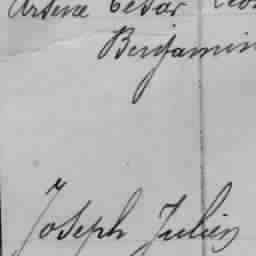 Arsène César Léo
Benjamin
Joseph Julien